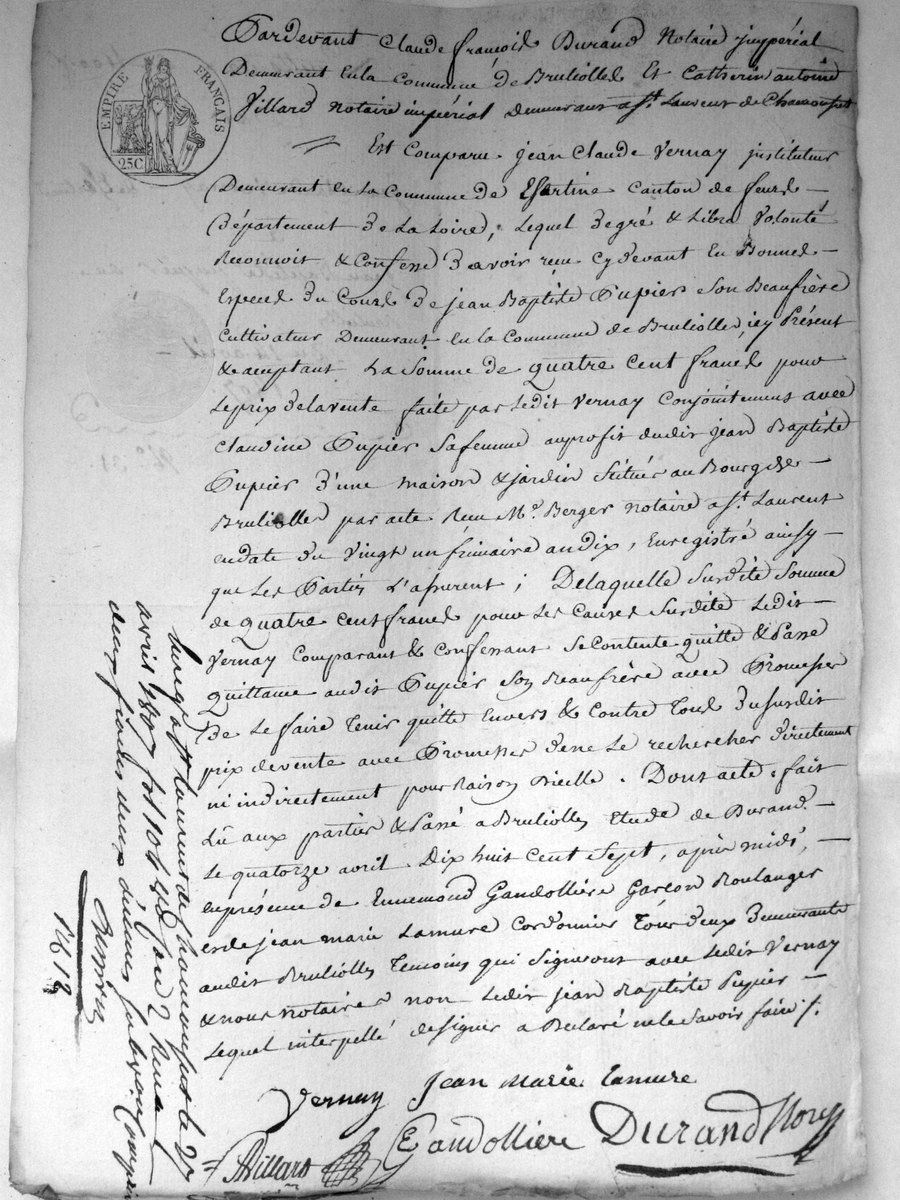 EMPIRE FRANÇAIS
25C
Pardevant Claude françois Durand Notaire jmpérial
Demeurant En la Commune de Bruliolles Et Catherin antoine
Villard Notaire impérial demeurant a St. Laurent de Chamousset
Est Comparu Jean Claude Vernay jnstituteur
Demeurant En La Commune de Esertine Canton de feurs
Département De La Loire, Lequel De gré & Libre Volonté
Reconnoit & Confesse D'avoir reçu cy devant En Bonnes
Especes Du Cours De jean Baptiste Pupier Son Beaufrère
Cultivateur Demeurant En la Commune de Bruliolles, icy Présent
& acceptant La Somme de quatre Cent francs pour
Le prix De la vente faite par Ledit Vernay Conjointement avec
Claudine Pupier Safemme auprofit dudit jean Baptiste
Pupier D'une maison & jardin Situés au Bourg de
Bruliolles par acte Reçu Me. Berger notaire a St. Laurent
endate Du Vingt un frimaire an dix, Enregistré ainsy
que Les Parties L'assurent ; De laquelle Surdite Somme
de quatre Cent francs pour Les Causes Surdite Ledit
Vernay Comparant & Confessant Se Contente quitte & Passe
quittance audit Pupier Son Beaufrère avec Promesse
De Le faire Tenir quitte Envers & Contre Tous Dusurdit
prix de vente avec Promesses Dene Le rechercher Directement
ni indirectement pour Raison D'icelle. Dont acte, fait
Lû aux parties & Passé a Bruliolles Etude de Durand
Le quatorze avril Dix huit Cent Sept, après midi,
enprésence de Ennemond Gandollière Garçon Boulanger
et de jean marie Lamure Cordonnier Tous deux Demeurants
audit Bruliolles Temoins qui Signeront avec Ledit Vernay
& nous notaires non Ledit jean Baptiste Pupier
Lequel interpellé designer a Déclaré ne le Savoir faire /.
Vernay Jean Marie Lamure
AVillard Gandolliere Durand Nore
Enregistré à St Laurent de Chamousset le 27
avril 1807
deux francs deux décimes
No. 31